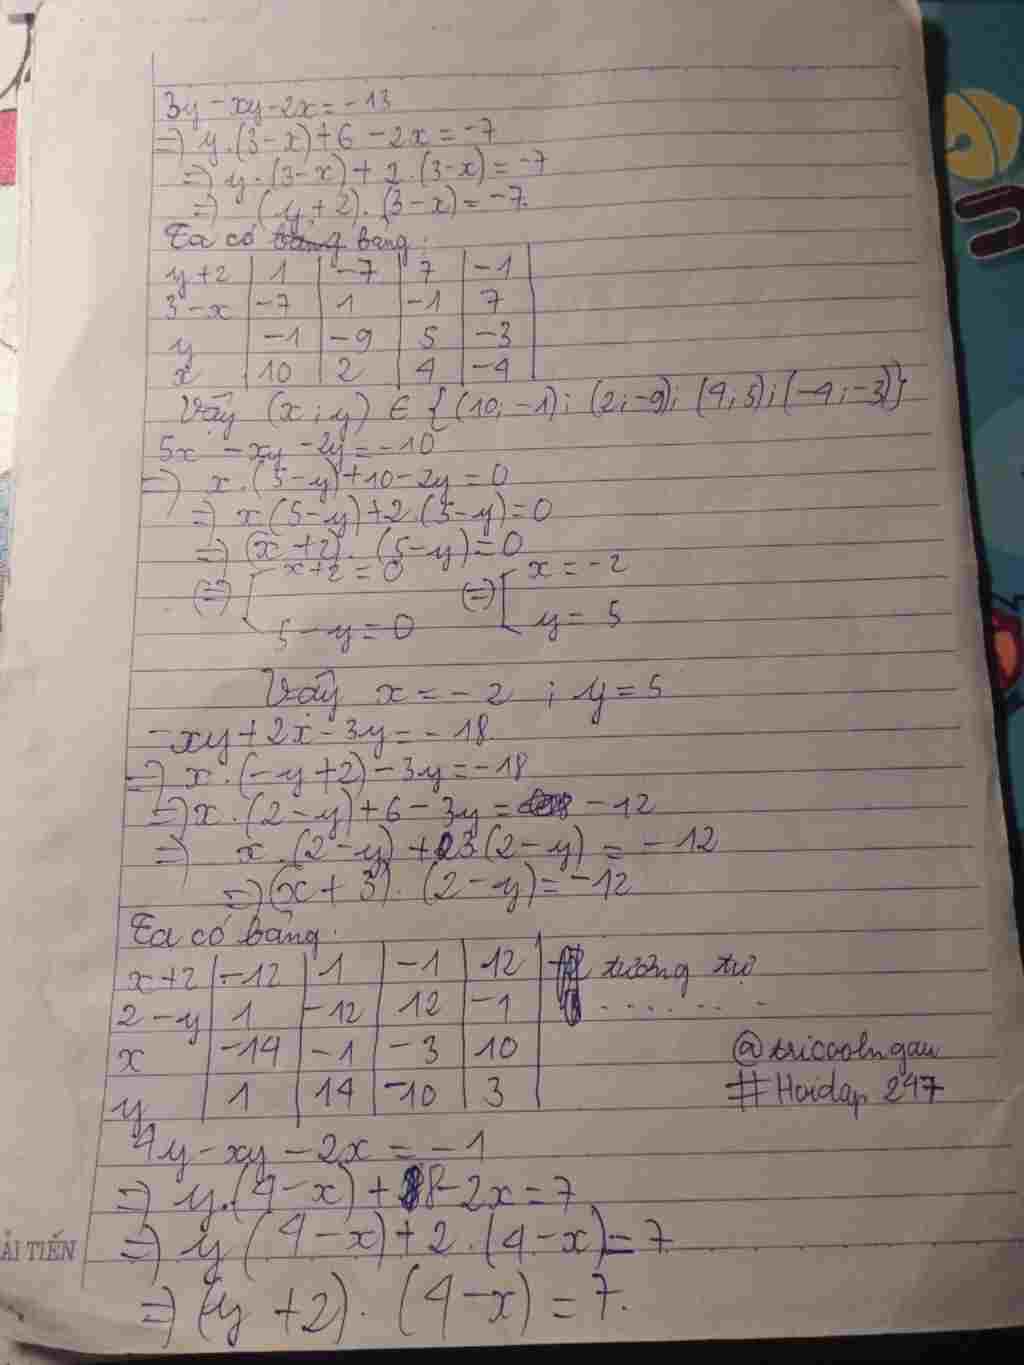 3y - xy - 2x = -13
=) y.(3-x)+6-2x = -7
=) y.(3-x)+2.(3-x) = -7
=) (y+2).(3-x) = -7.
Ta có bảng:
y+2 | 1 | -7 | 7 | -1
3-x | -7 | 1 | -1 | 7
y | -1 | -9 | 5 | -3
x | 10 | 2 | 4 | -4
Vậy (x;y) ∈ {(10;-1); (2;-9); (4;5); (-4;-3)}
5x - xy - 2y = -10
=) x.(5-y)+10-2y = 0
=) x(5-y)+2.(5-y) = 0
=) (x+2).(5-y) = 0
(=) [ x+2 = 0 (=) [ x = -2
5-y = 0 y = 5
Vậy x = -2 ; y = 5
-xy+2x-3y = -18
=) x.(-y+2)-3y = -18
=) x.(2-y)+6-3y = -12
=) x.(2-y)+3(2-y) = -12
=) (x+3).(2-y) = -12
Ta có bảng:
x+2 | -12 | 1 | -1 | 12 | tương tự
2-y | 1 | -12 | 12 | -1 | .......
x | -14 | -1 | -3 | 10
y | 1 | 14 | -10 | 3
@tricoolngau
#Hoidap 247
4y - xy - 2x = -1
=) y.(4-x)+8-2x = 7
=) y(4-x)+2.(4-x) = 7
=) (y+2).(4-x) = 7.
ẢI TIẾN